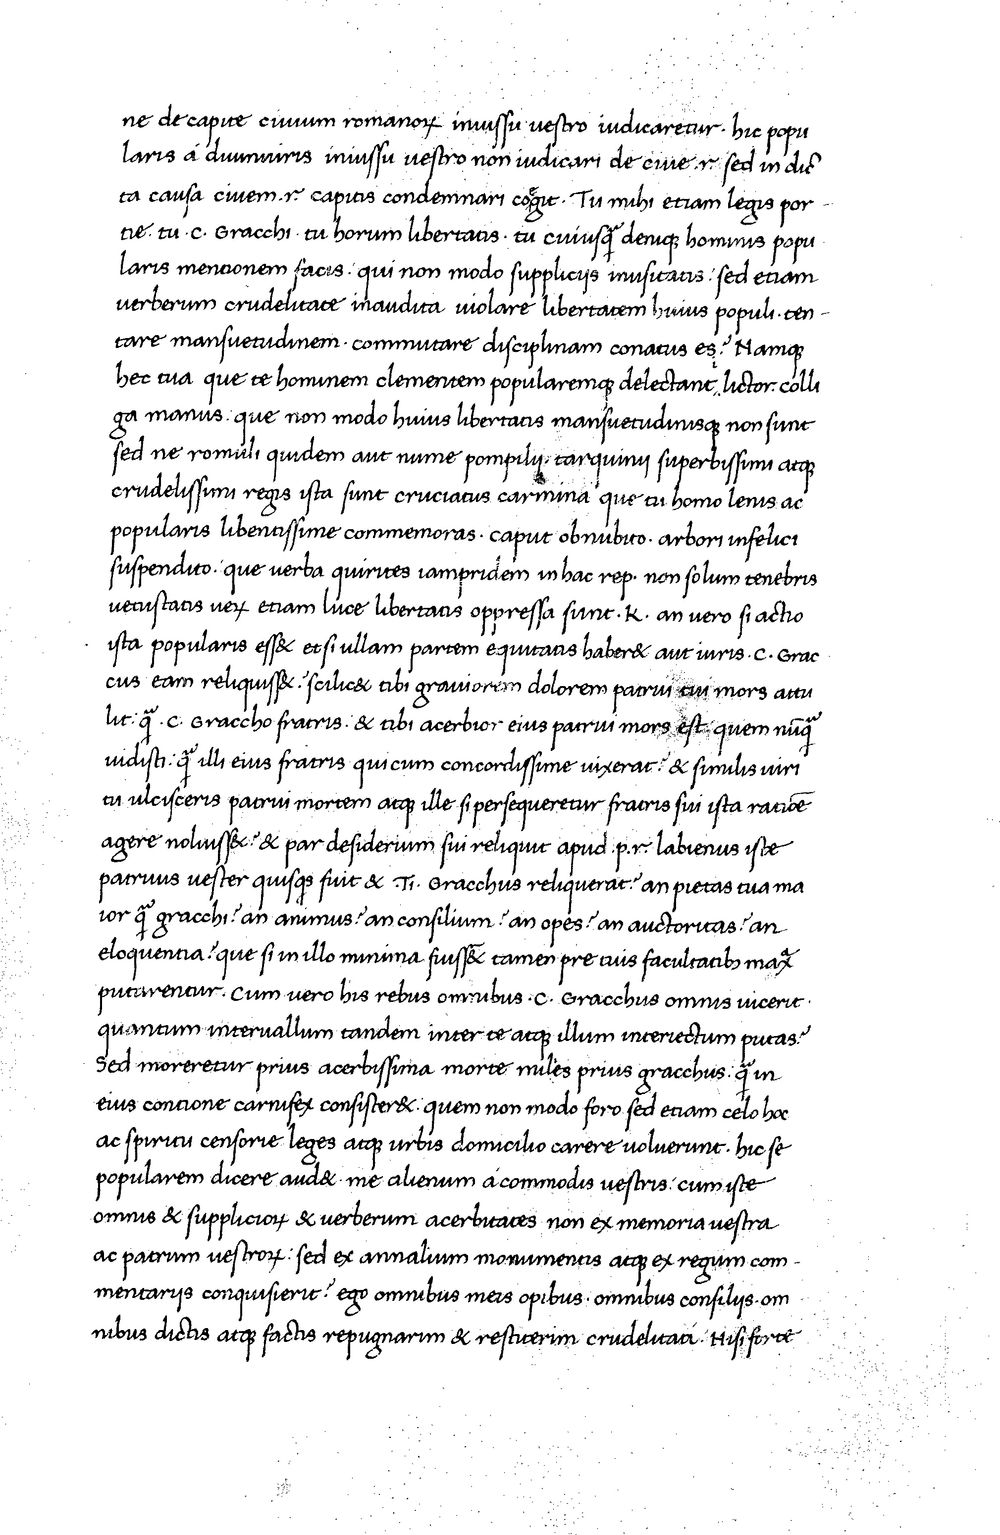 ne de capite ciuium romanoꝝ iniussu uestro iudicaretur · hic popu
laris a duumuiris iniussu uestro non iudicari de ciue .r. sed in dic̄
ta causa ciuem .r. capitis condemnari coegit · Tu mihi etiam legis por -
tie · tu · C · Gracchi · tu horum libertatis · tu cuiusq̄ deniqꝫ hominis popu
laris mentionem facis : qui non modo suppliciis inusitatis : sed etiam
uerberum crudelitate inaudita uiolare libertatem huius populi · ten -
tare mansuetudinem · commutare disciplinam conatus es ? Namqꝫ
hec tua que te hominem clementem popularemqꝫ delectant, i lictor: colli
ga manus : que non modo huius libertatis mansuetudinisqꝫ non sunt
sed ne romuli quidem aut nume pompilij · tarquinij superbissimi atqꝫ
crudelissimi regis ista sunt cruciatus carmina que tu homo lenis ac
popularis libentissime commemoras · caput obnubito · arbori infelici
suspendito · que uerba quirites iampridem in hac rep · non solum tenebris
uetustatis ueꝝ etiam luce libertatis oppressa sunt · K · an vero si actio
ista popularis ess& et si ullam partem equitatis haber& aut iuris · C · Grac
cus eam reliquiss& ? scilic& tibi grauiorem dolorem patrui tui mors attu
lit : q̄ · C · Graccho fratris · & tibi acerbior eius patrui mors est · quem nūq̄
uidisti : q̄ illi eius fratris qui cum concordissime uixerat ? & similis uiri
tu ulcisceris patrui mortem atqꝫ ille si persequeretur fratris sui ista ratiōe
agere noluiss& ? & par desiderium sui reliquit apud .p.r. labienus iste
patruus uester quisqs fuit & Ti · Gracchus reliquerat ? an pietas tua ma
ior q̄ gracchi ? an animus ? an consilium ? an opes ? an auctoritas ? an
eloquentia ? que si in illo minima fuiss& tamen pre tuis facultatibꝫ max̄
putarentur · Cum uero his rebus omnibus · C · Gracchus omnis uicerit ·
quantum interuallum tandem inter te atqꝫ illum interiectum putas ?
Sed moreretur prius acerbissima morte miles prius gracchus : q̄ in
eius contione carnifex consister& · quem non modo foro sed etiam celo hoc
ac spiritu censorie leges atqꝫ urbis domicilio carere uoluerunt · hic se
popularem dicere aud& · me alienum a commodis uestris : cum iste
omnis & supplicioꝝ & uerberum acerbitates non ex memoria uestra
ac patrum uestroꝝ : sed ex annalium monumentis atqꝫ ex regum com -
mentarijs conquisierit ? ego omnibus meis opibus · omnibus consilijs · om
nibus dictis atqꝫ factis repugnarim & restiterim crudelitati · Nisi forte